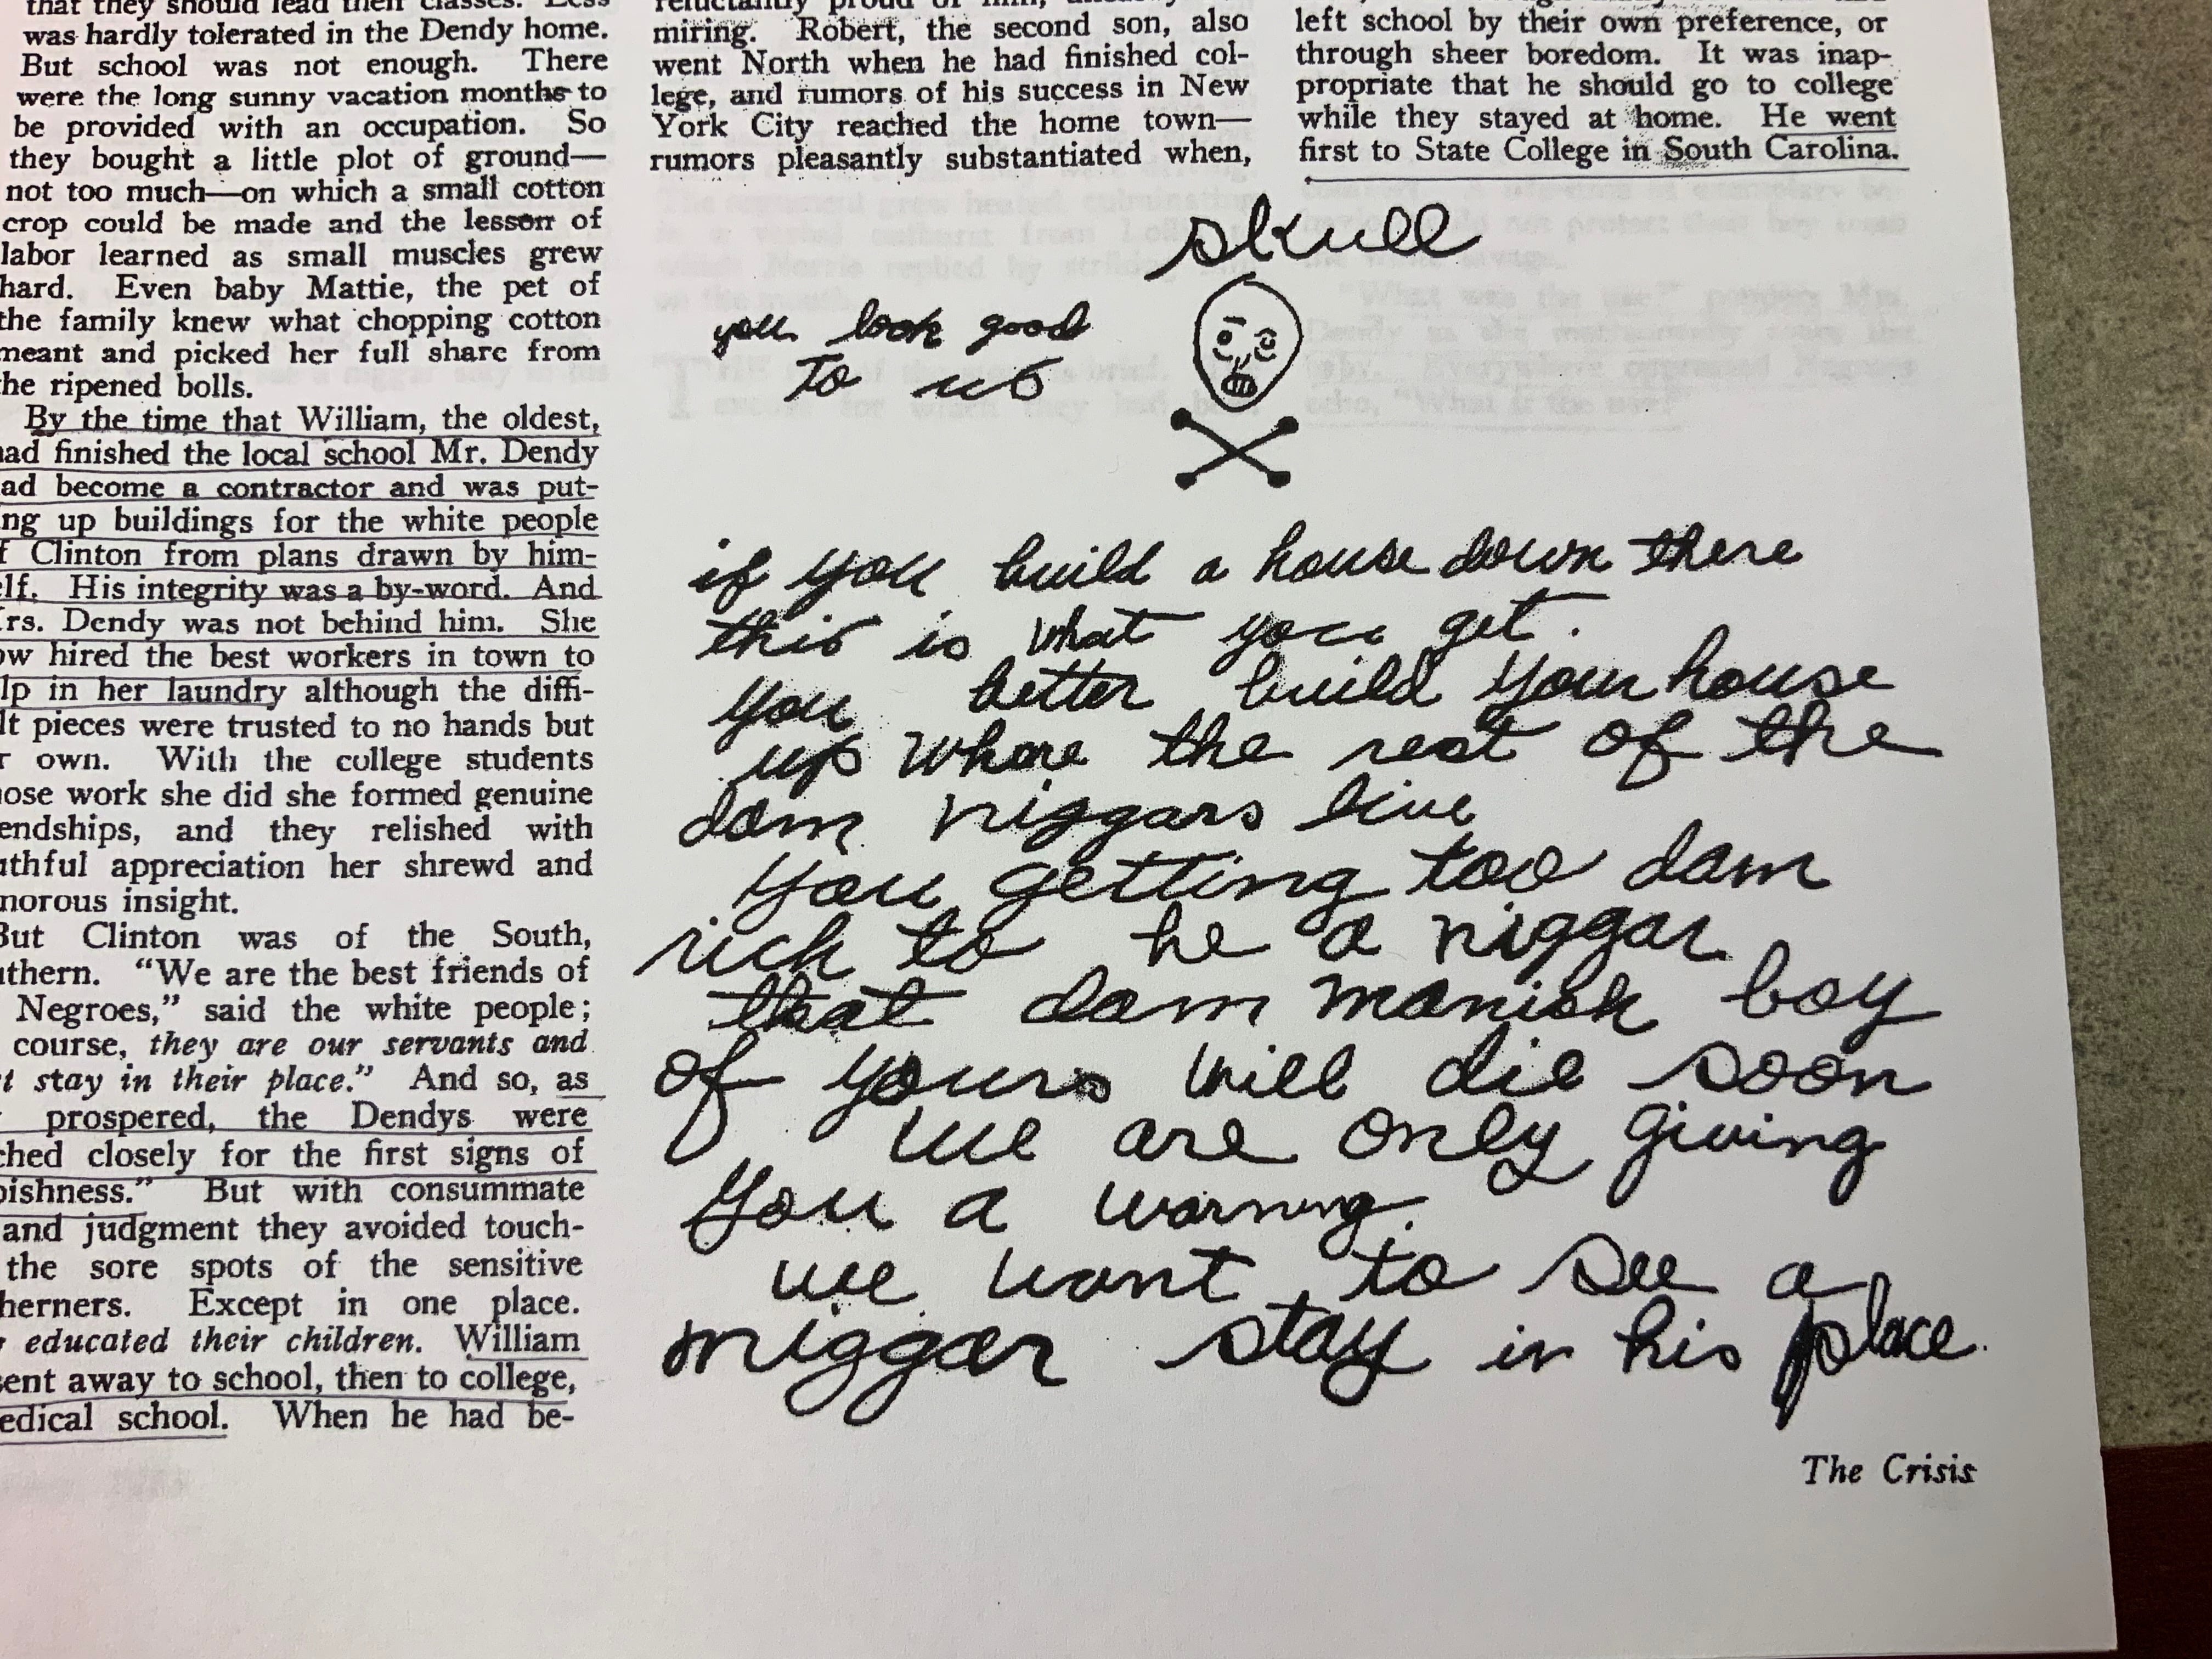 that they should lead their classes. Less
was hardly tolerated in the Dendy home.
But school was not enough. There
were the long sunny vacation months to
be provided with an occupation. So
they bought a little plot of ground—
not too much—on which a small cotton
crop could be made and the lesson of
labor learned as small muscles grew
hard. Even baby Mattie, the pet of
the family knew what chopping cotton
meant and picked her full share from
he ripened bolls.
By the time that William, the oldest,
ad finished the local school Mr. Dendy
ad become a contractor and was put-
ng up buildings for the white people
f Clinton from plans drawn by him-
elf. His integrity was a by-word. And
rs. Dendy was not behind him. She
ow hired the best workers in town to
lp in her laundry although the diffi-
lt pieces were trusted to no hands but
r own. With the college students
hose work she did she formed genuine
endships, and they relished with
uthful appreciation her shrewd and
norous insight.
But Clinton was of the South,
uthern. "We are the best friends of
Negroes," said the white people;
course, they are our servants and
t stay in their place." And so, as
prospered, the Dendys were
ched closely for the first signs of
pishness." But with consummate
and judgment they avoided touch-
the sore spots of the sensitive
herners. Except in one place.
educated their children. William
sent away to school, then to college,
edical school. When he had be-
reluctantly proud of him,
miring. Robert, the second son, also
went North when he had finished col-
lege, and rumors of his success in New
York City reached the home town—
rumors pleasantly substantiated when,
left school by their own preference, or
through sheer boredom. It was inap-
propriate that he should go to college
while they stayed at home. He went
first to State College in South Carolina.
skull
you look good
to us
if you build a house down there
this is what you get.
you better build your house
up whare the rest of the
dam niggars live
You getting too dam
rich to be a niggar
that dam manish boy
of yours will die soon
we are only giving
You a warning.
we want to see a
niggar stay in his place.
The Crisis